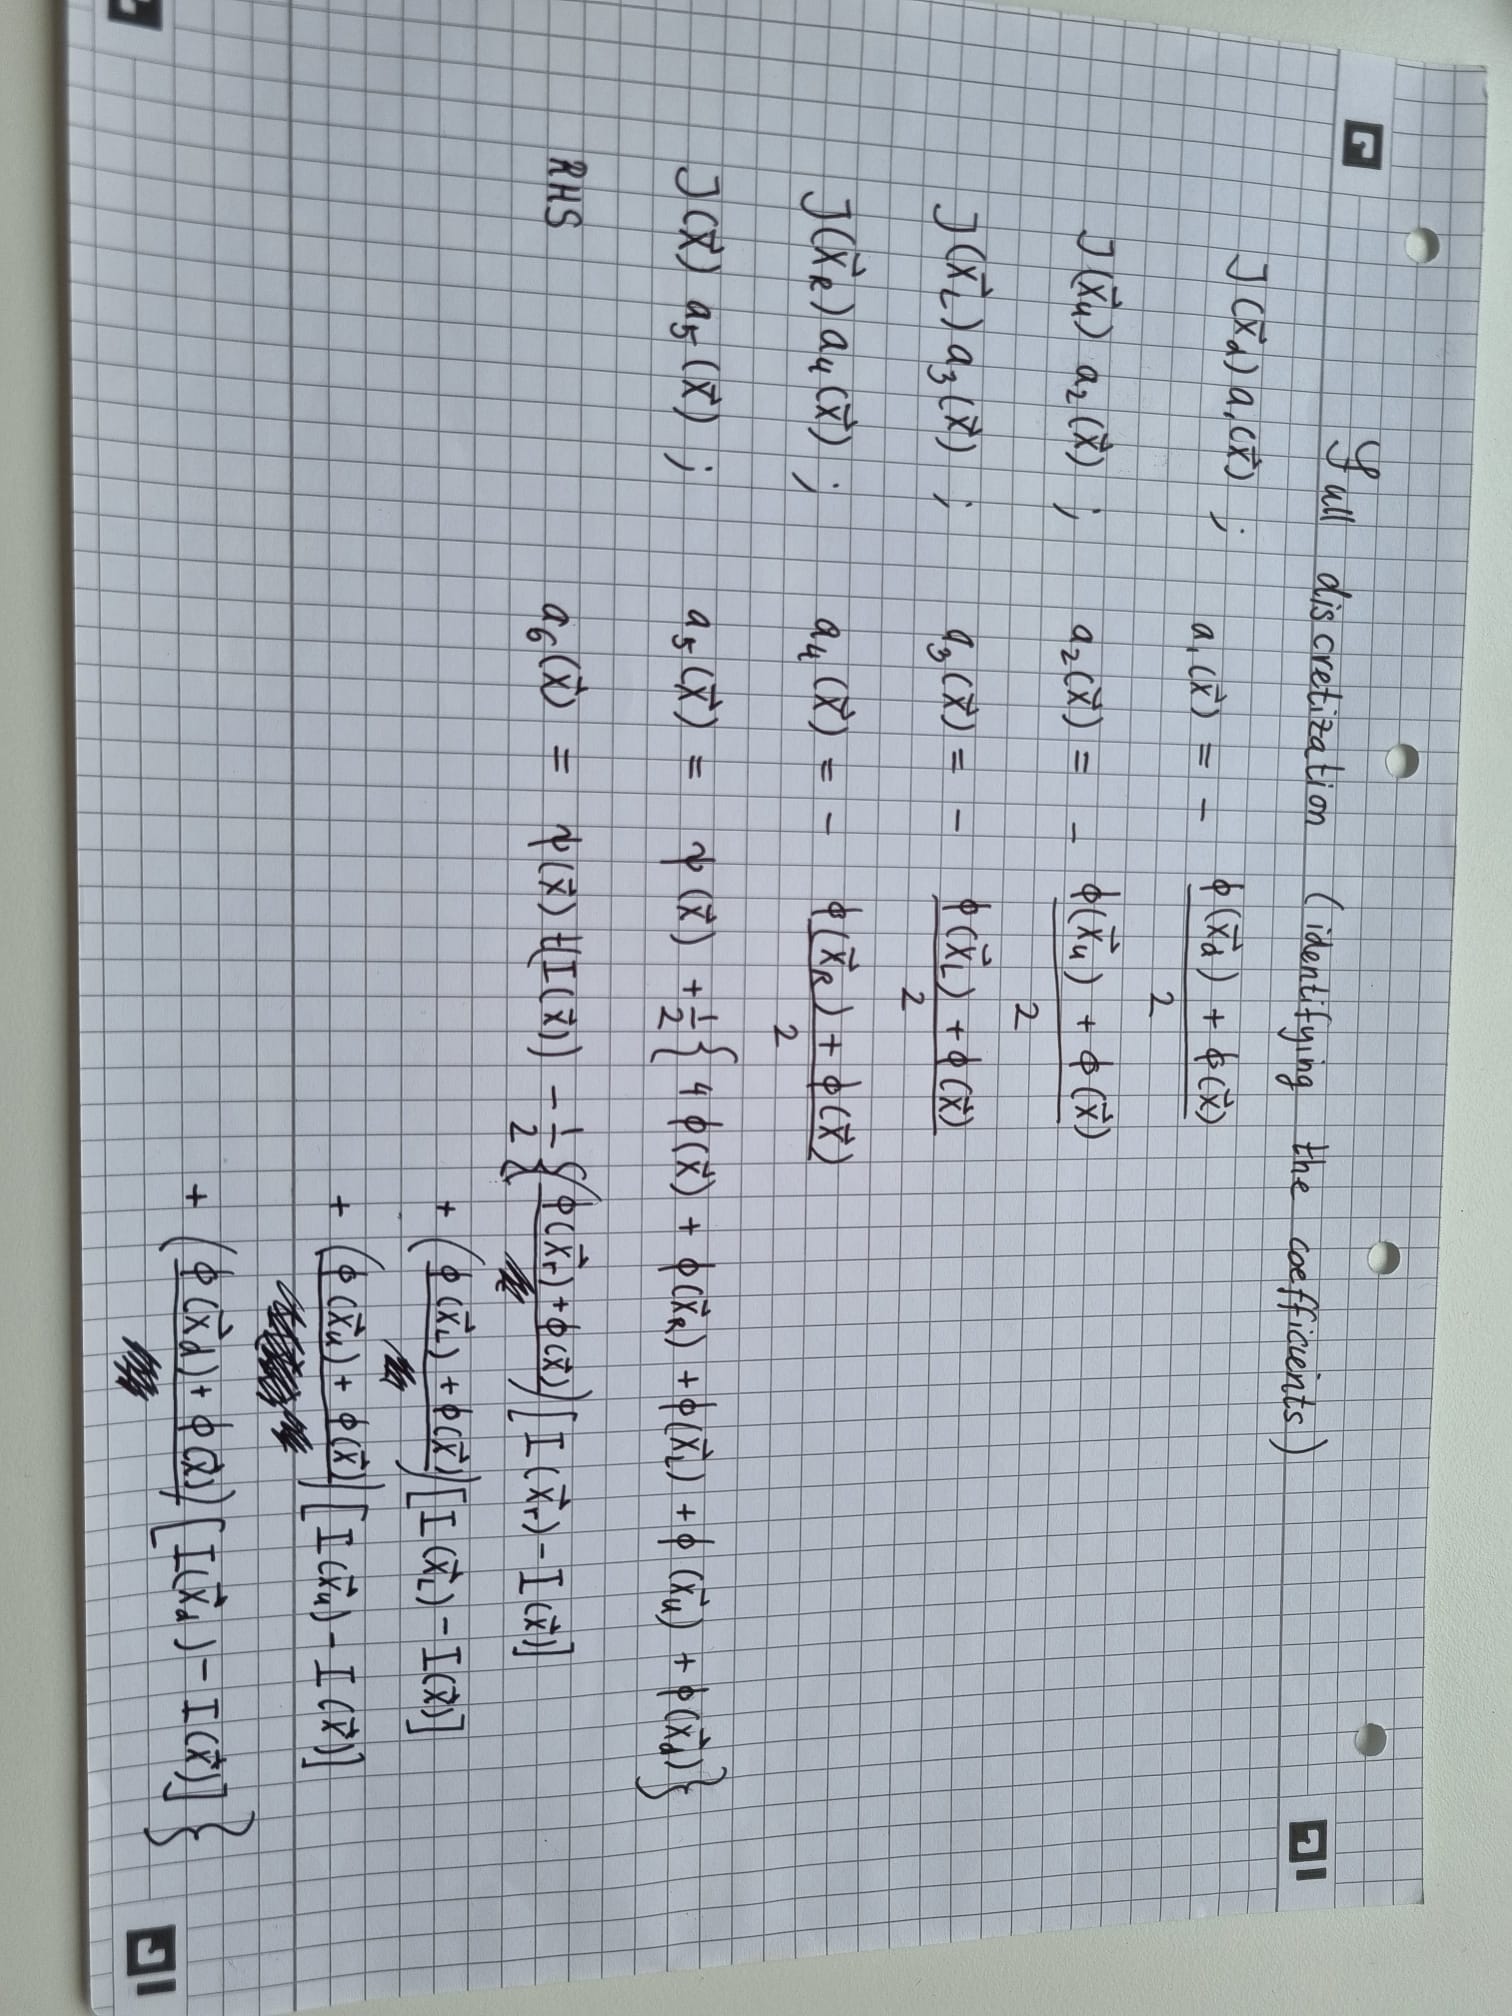 Full discretization (identifying the coefficients)
J(x⃗d) a₁(x⃗) ; a₁(x⃗) = - (ϕ(x⃗d) + ϕ(x⃗))/2
J(x⃗u) a₂(x⃗) ; a₂(x⃗) = - (ϕ(x⃗u) + ϕ(x⃗))/2
J(x⃗L) a₃(x⃗) ; a₃(x⃗) = - (ϕ(x⃗L) + ϕ(x⃗))/2
J(x⃗R) a₄(x⃗) ; a₄(x⃗) = - (ϕ(x⃗R) + ϕ(x⃗))/2
J(x⃗) a₅(x⃗) ; a₅(x⃗) = ψ(x⃗) + 1/2 { 4 ϕ(x⃗) + ϕ(x⃗R) + ϕ(x⃗L) + ϕ(x⃗u) + ϕ(x⃗d) }
RHS a₆(x⃗) = ψ(x⃗) t(I(x⃗)) - 1/2 { (ϕ(x⃗r) + ϕ(x⃗)) [I(x⃗r) - I(x⃗)]
+ (ϕ(x⃗L) + ϕ(x⃗)) [I(x⃗L) - I(x⃗)]
+ (ϕ(x⃗u) + ϕ(x⃗)) [I(x⃗u) - I(x⃗)]
+ (ϕ(x⃗d) + ϕ(x⃗)) [I(x⃗d) - I(x⃗)] }